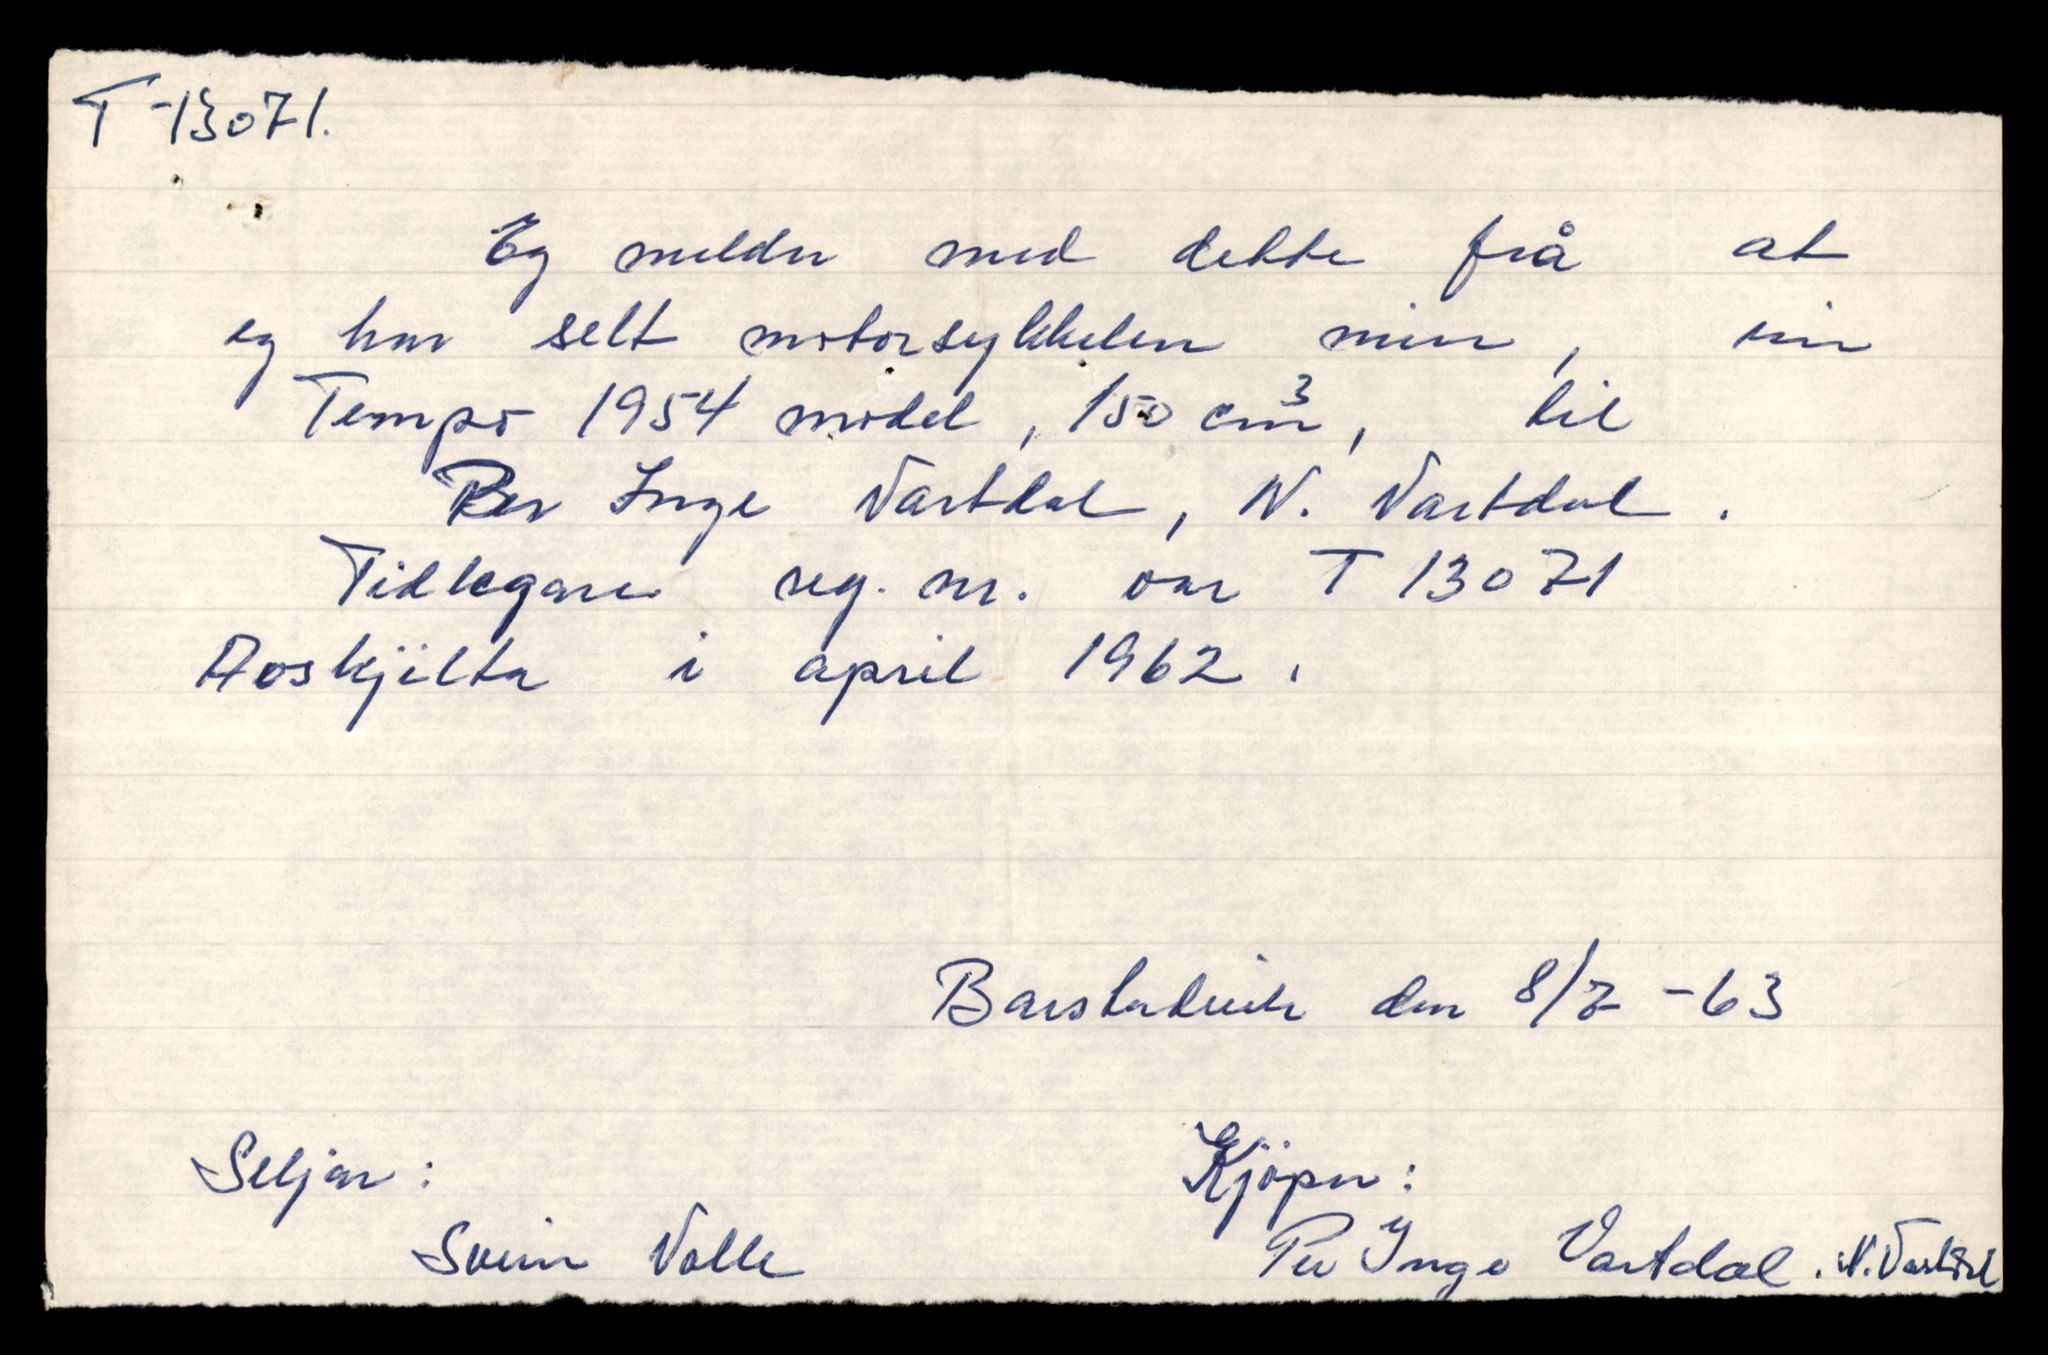 T-13071.
Eg melder med dette frå at
eg har selt motorsykkelen min, ein
Tempo 1954 model, 150 cm³, til
Per Inge Vartdal, N. Vartdal.
Tidlegare reg. nr. var T 13071
Avskjilta i april 1962.
Barstadvik den 8/7 -63
Seljar: Kjöper:
Svein Valle Per Inge Vartdal. N. Vartdal